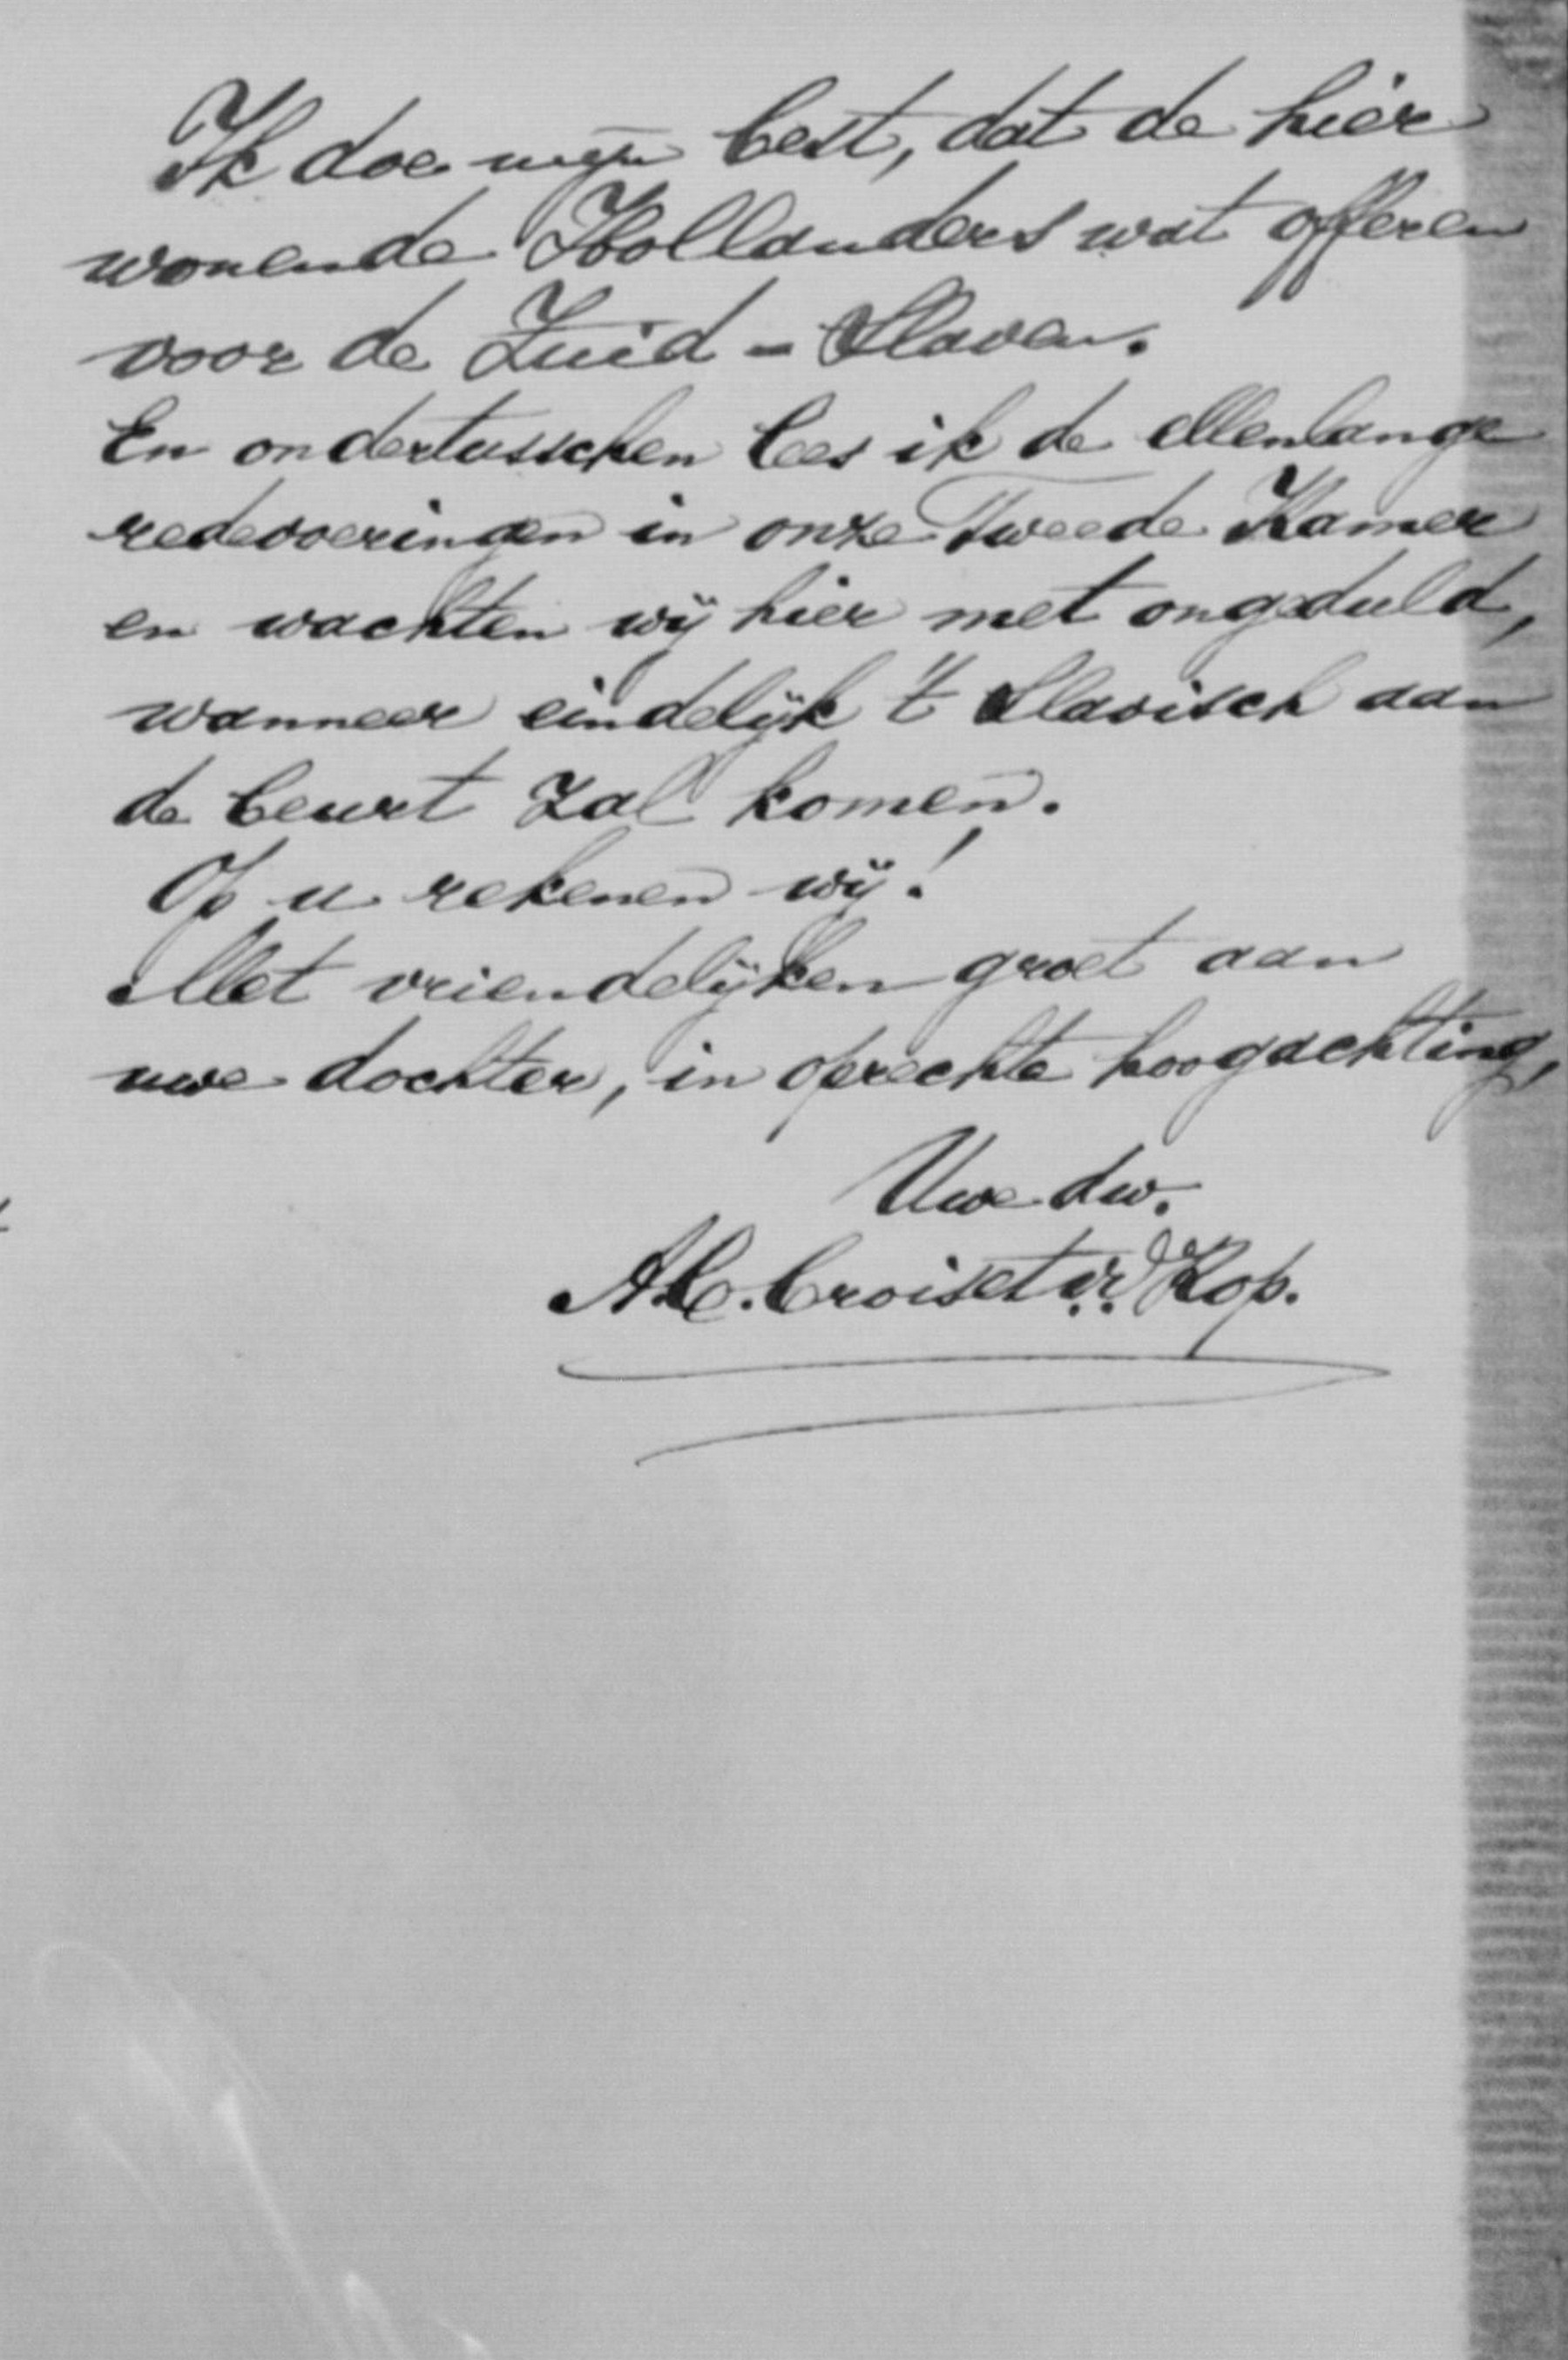 Ik doe mijn best, dat de hier
wonende Hollanders wat offeren
voor de Zuid-Slaven.
En ondertusschen lees ik de ellenlange
redevoeringen in onze Tweede Kamer
en wachten wij hier met ongeduld,
wanneer eindelijk 't Slavisch aan
de beurt zal komen.
Op u rekenen wij!
Met vriendelijken groet aan
uwe dochter, in oprechte hoogachting,
Uwe dw.
A.C. Croiset v.d. Kop.